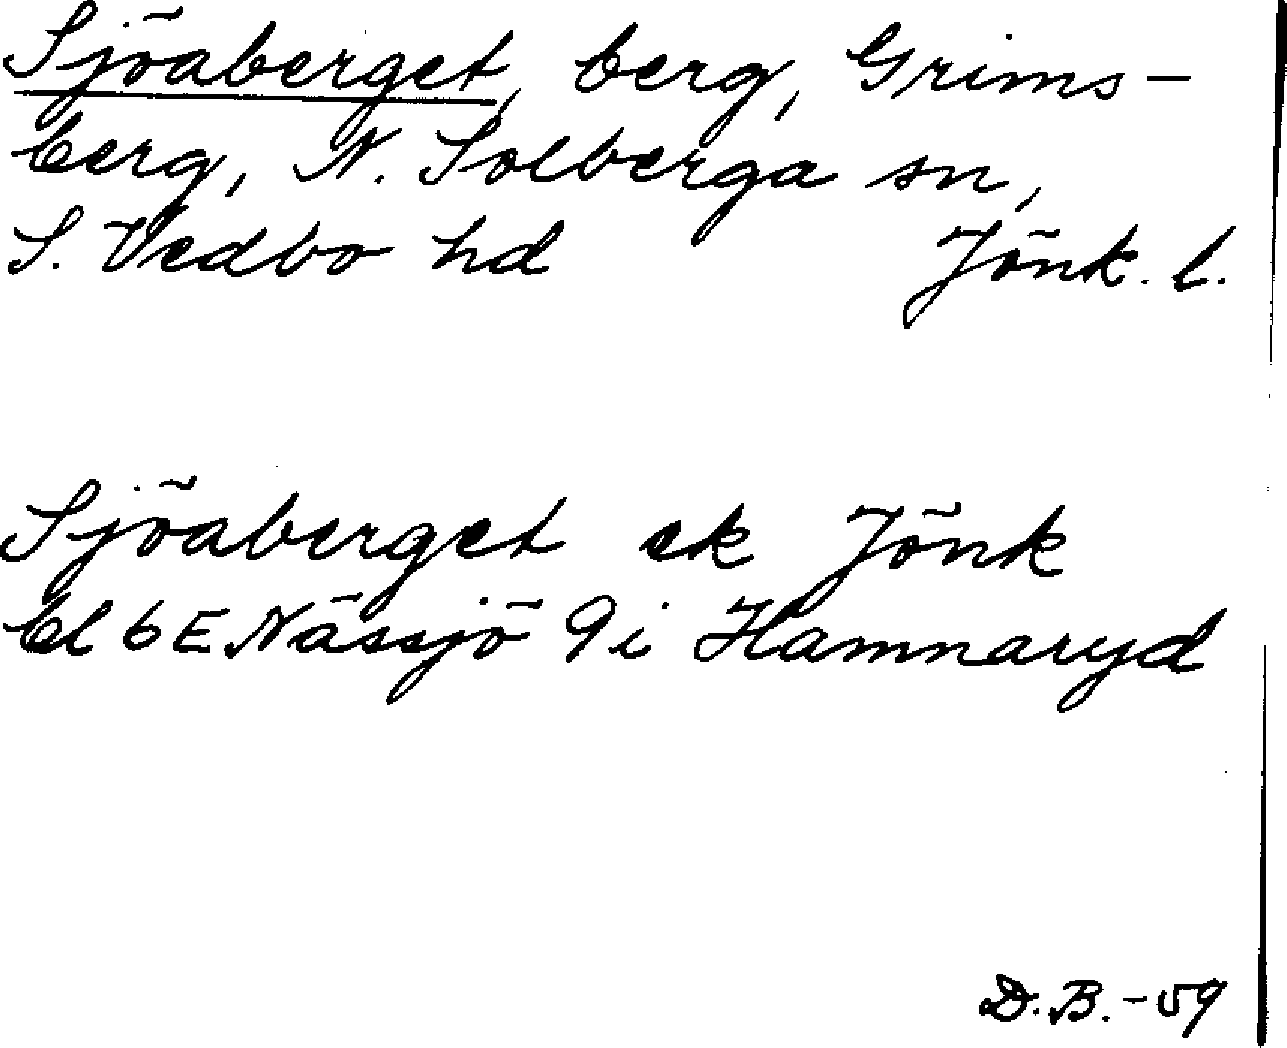 Sjöaberget, berg, Grims-
berg, N. Solberga sn,
S. Vedbo hd Jönk. l.
Sjöaberget ek Jönk
bl 6E Nässjö 9i Hamnaryd
D.B. -59